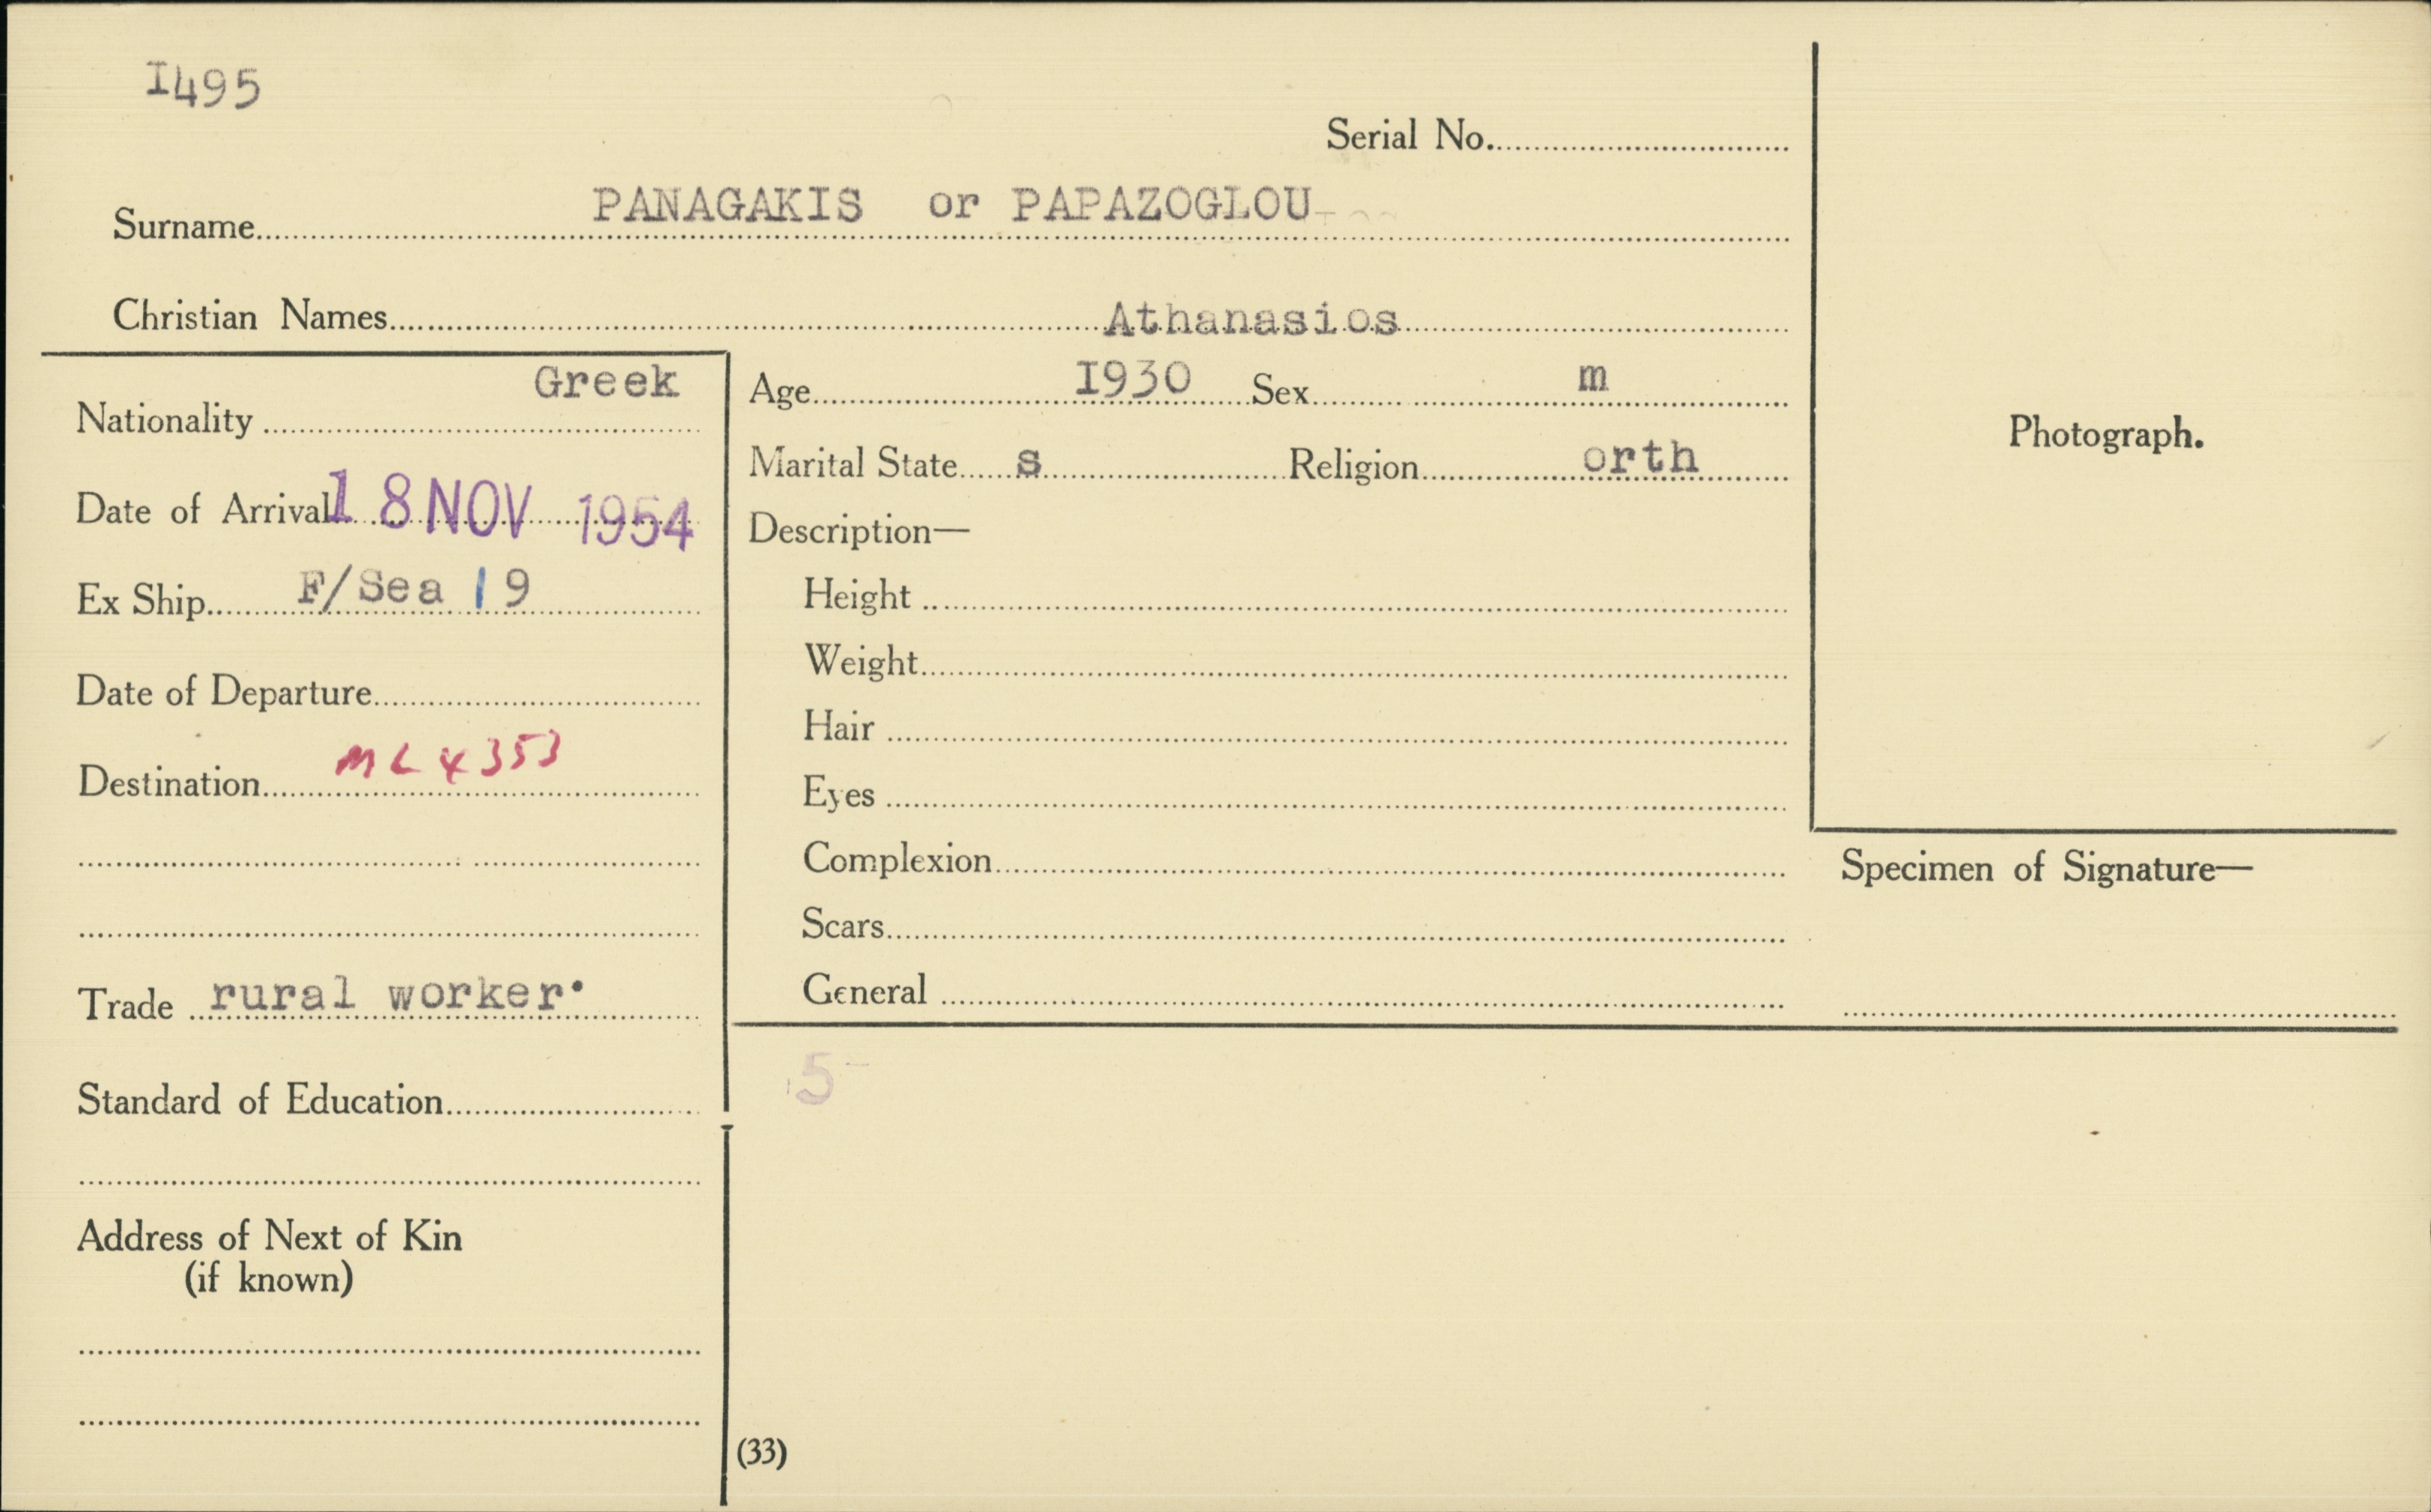 I495
Serial No.
Surname PANAGAKIS or PAPAZOGLOU
Christian Names Athanasios
Nationality Greek
Date of Arrival 18 NOV 1954
Ex Ship F/Sea 19
Date of Departure
Destination ML 4353
Trade rural worker.
Standard of Education
Address of Next of Kin
(if known)
Age I930 Sex m
Marital State s Religion orth
Description—
Height
Weight
Hair
Eyes
Complexion
Scars
General
Photograph.
Specimen of Signature—
5
(33)